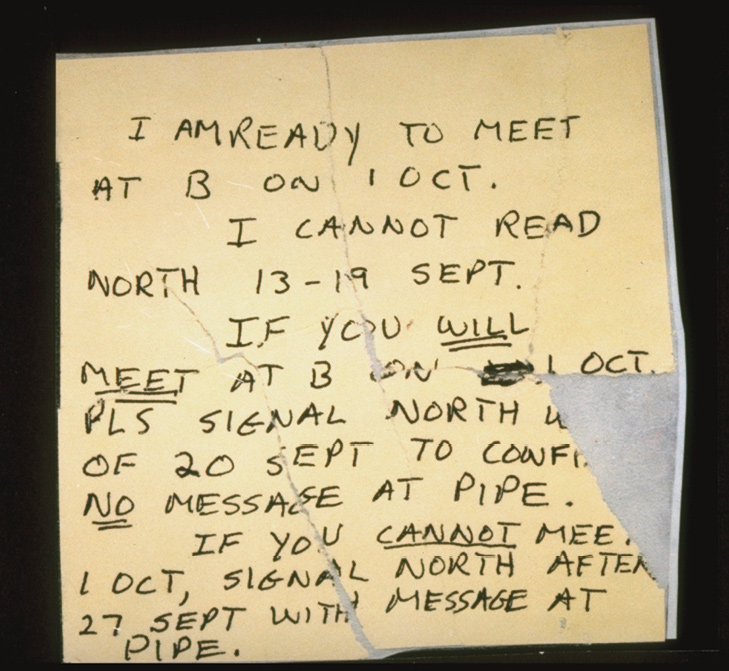 I AM READY TO MEET
AT B ON 1 OCT.
I CANNOT READ
NORTH 13-19 SEPT.
IF YOU WILL
MEET AT B ON 1 OCT.
PLS SIGNAL NORTH
OF 20 SEPT TO
NO MESSAGE AT PIPE.
IF YOU CANNOT
1 OCT, SIGNAL NORTH AFTER
27 SEPT WITH MESSAGE AT
PIPE.